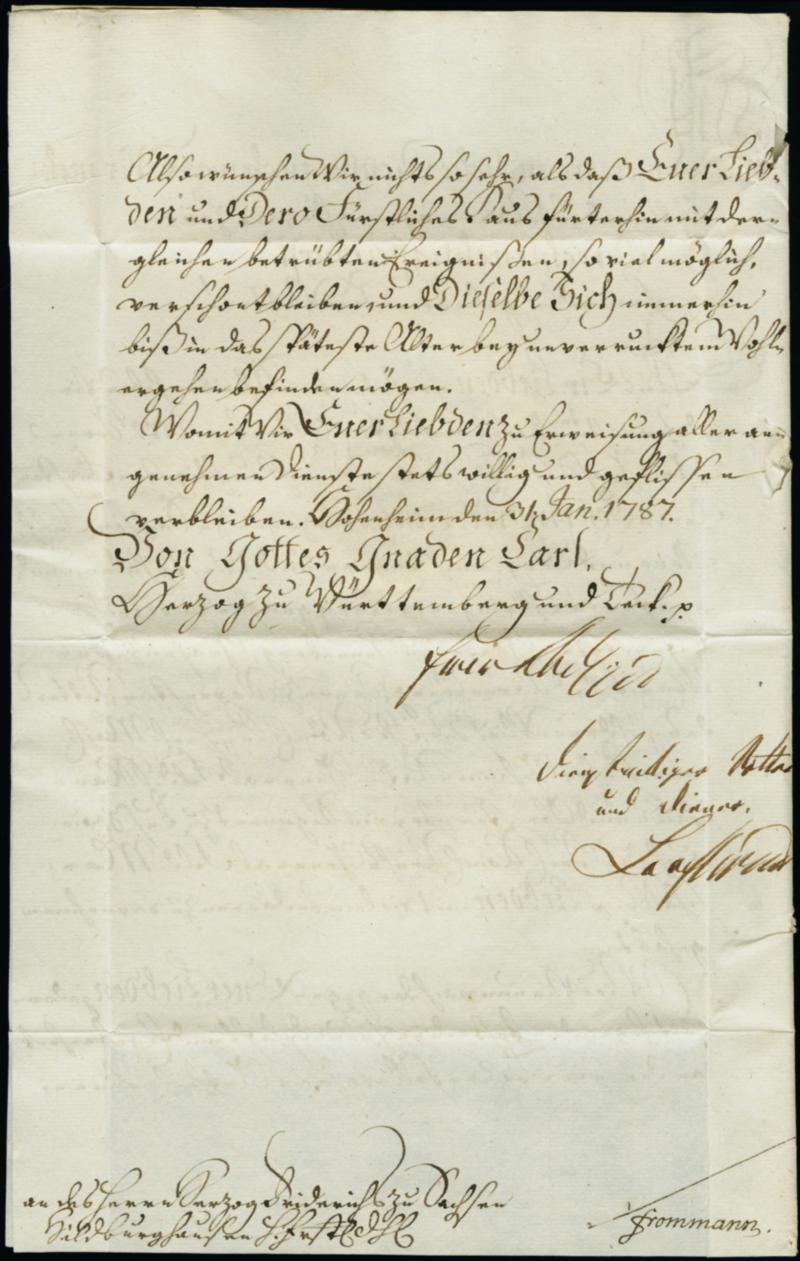 Also wünschen Wir nichts so sehr, als daß Euer Lieb-
den und Dero Fürstliches Haus fürterhin mit der-
gleichen betrübten Ereignißen, so viel möglich,
verschont bleiben, und Dieselbe Sich immerhin
biß in das späteste Alter bey unverrucktem Wohl-
ergehen befinden mögen.
Womit Wir Euer Liebden zu Erweisung aller an-
genehmen Dienste stets willig und geflissen
verbleiben. Hohenheim den 31. Jan. 1787.
Von Gottes Gnaden Carl,
Herzog zu Württemberg und Teck. p
Euer
dienstwilliger Vetter
und Diener.
an des Herrn Herzog Friderichs zu Sachsen
Hildburghausen
Frommann.